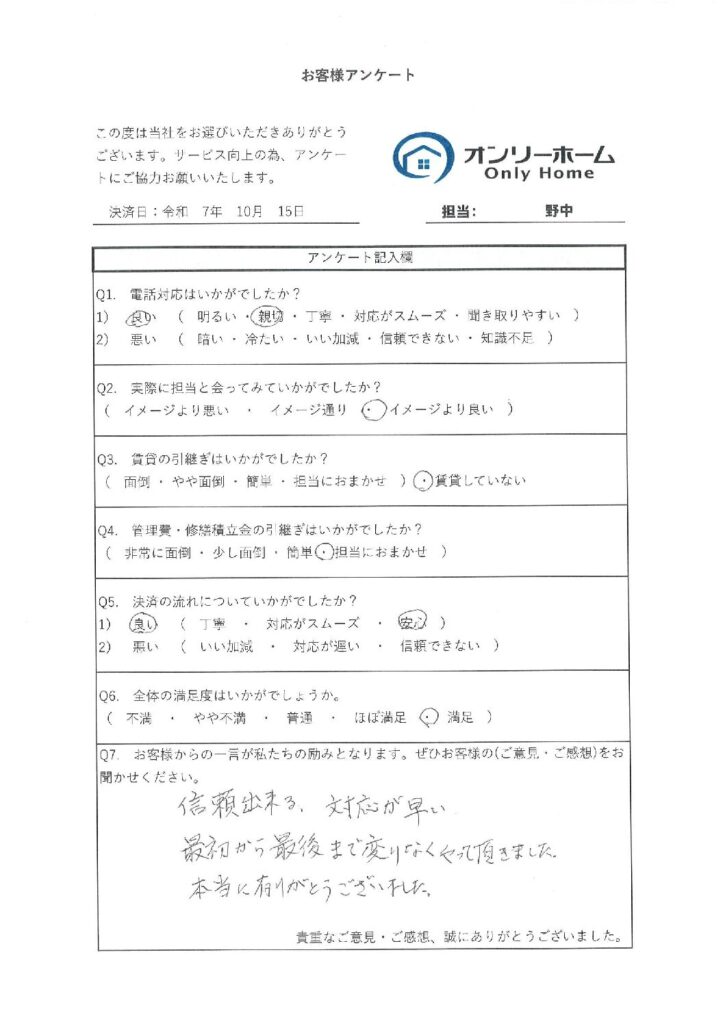 お客様アンケート
この度は当社をお選びいただきありがとう
ございます。サービス向上の為、アンケー
トにご協力お願いいたします。
オンリーホーム
Only Home
決済日：令和　7年　10月　15日
担当：　野中
アンケート記入欄
Q1.　電話対応はいかがでしたか？
1)　良い　(　明るい・親切・丁寧・対応がスムーズ・聞き取りやすい　)
2)　悪い　(　暗い・冷たい・いい加減・信頼できない・知識不足　)
Q2.　実際に担当と会ってみていかがでしたか？
(　イメージより悪い　・　イメージ通り　・　イメージより良い　)
Q3.　賃貸の引継ぎはいかがでしたか？
(　面倒・やや面倒・簡単・担当におまかせ　)・賃貸していない
Q4.　管理費・修繕積立金の引継ぎはいかがでしたか？
(　非常に面倒・少し面倒・簡単・担当におまかせ　)
Q5.　決済の流れについていかがでしたか？
1)　良い　(　丁寧　・　対応がスムーズ　・　安心　)
2)　悪い　(　いい加減　・　対応が遅い　・　信頼できない　)
Q6.　全体の満足度はいかがでしょうか。
(　不満　・　やや不満　・　普通　・　ほぼ満足　・　満足　)
Q7.　お客様からの一言が私たちの励みとなります。ぜひお客様の(ご意見・ご感想)をお
聞かせください。
信頼出来る、対応が早い
最初から最後まで変りなくやって頂きました。
本当に有りがとうございました。
貴重なご意見・ご感想、誠にありがとうございました。